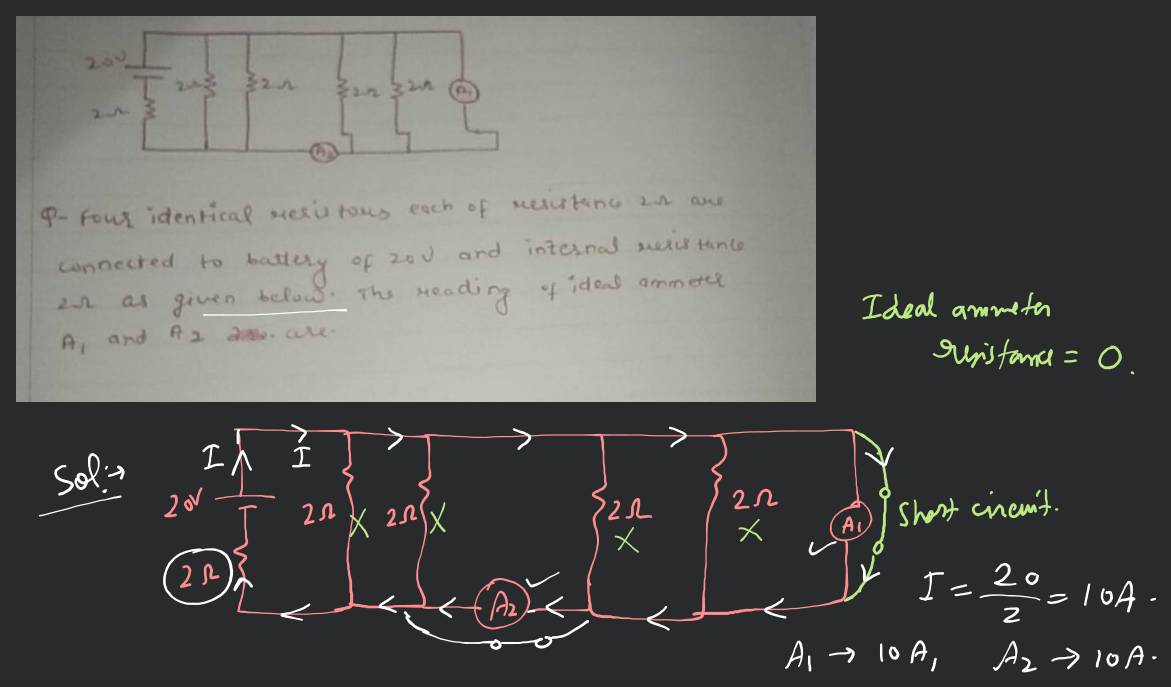 20V
2Ω 2Ω 2Ω 2Ω A1
2Ω
A2
Q- Four identical resistors each of resistance 2Ω are
connected to battery of 20V and internal resistance
2Ω as given below. The reading of ideal ammeter
A1 and A2 are.
Ideal ammeter
resistance = 0.
Sol:→
I I
20V 2Ω 2Ω 2Ω 2Ω A1 Short circuit.
X X X X
2Ω A2
I = 20/2 = 10A.
A1 → 10A, A2 → 10A.